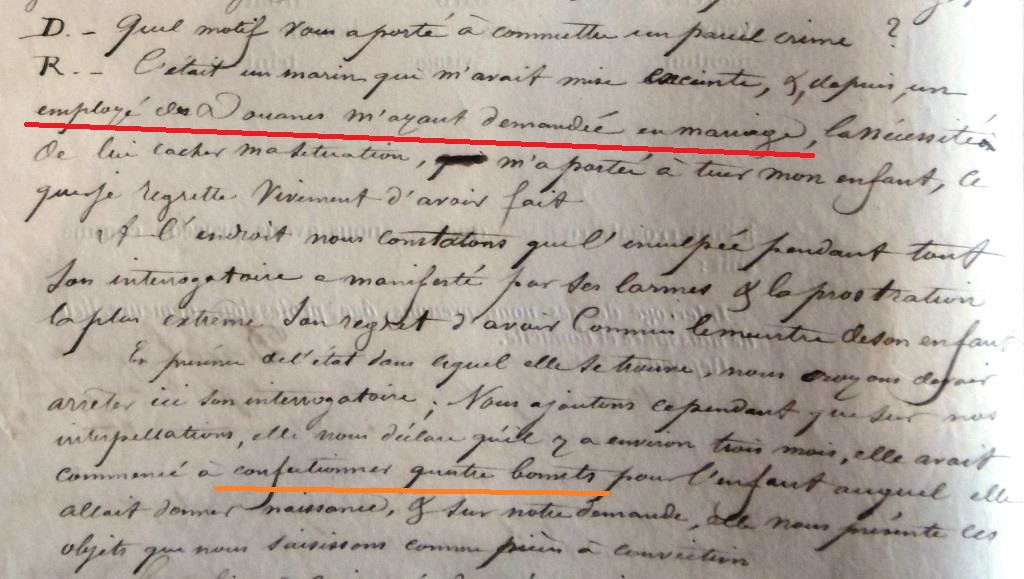 D. - Quel motif vous a porté à commettre un pareil crime ?
R. - C'était un marin qui m'avait mise enceinte, &, depuis, un
employé des Douanes m'ayant demandée en mariage, la nécessité
de lui cacher ma situation, m'a portée à tuer mon enfant, ce
que je regrette vivement d'avoir fait
A l'endroit nous constatons que l'inculpée pendant tout
son interrogatoire a manifesté par ses larmes & la prostration
la plus extrême son regret d'avoir commis le meurtre de son enfant
En présence de l'état dans lequel elle se trouve, nous croyons devoir
arrêter ici son interrogatoire ; Nous ajoutons cependant que sur nos
interpellations, elle nous déclare qu'il y a environ trois mois, elle avait
commencé à confectionner quatre bonnets pour l'enfant auquel elle
allait donner naissance, & sur notre demande, elle nous présente ces
objets que nous saisissons comme pièces à conviction